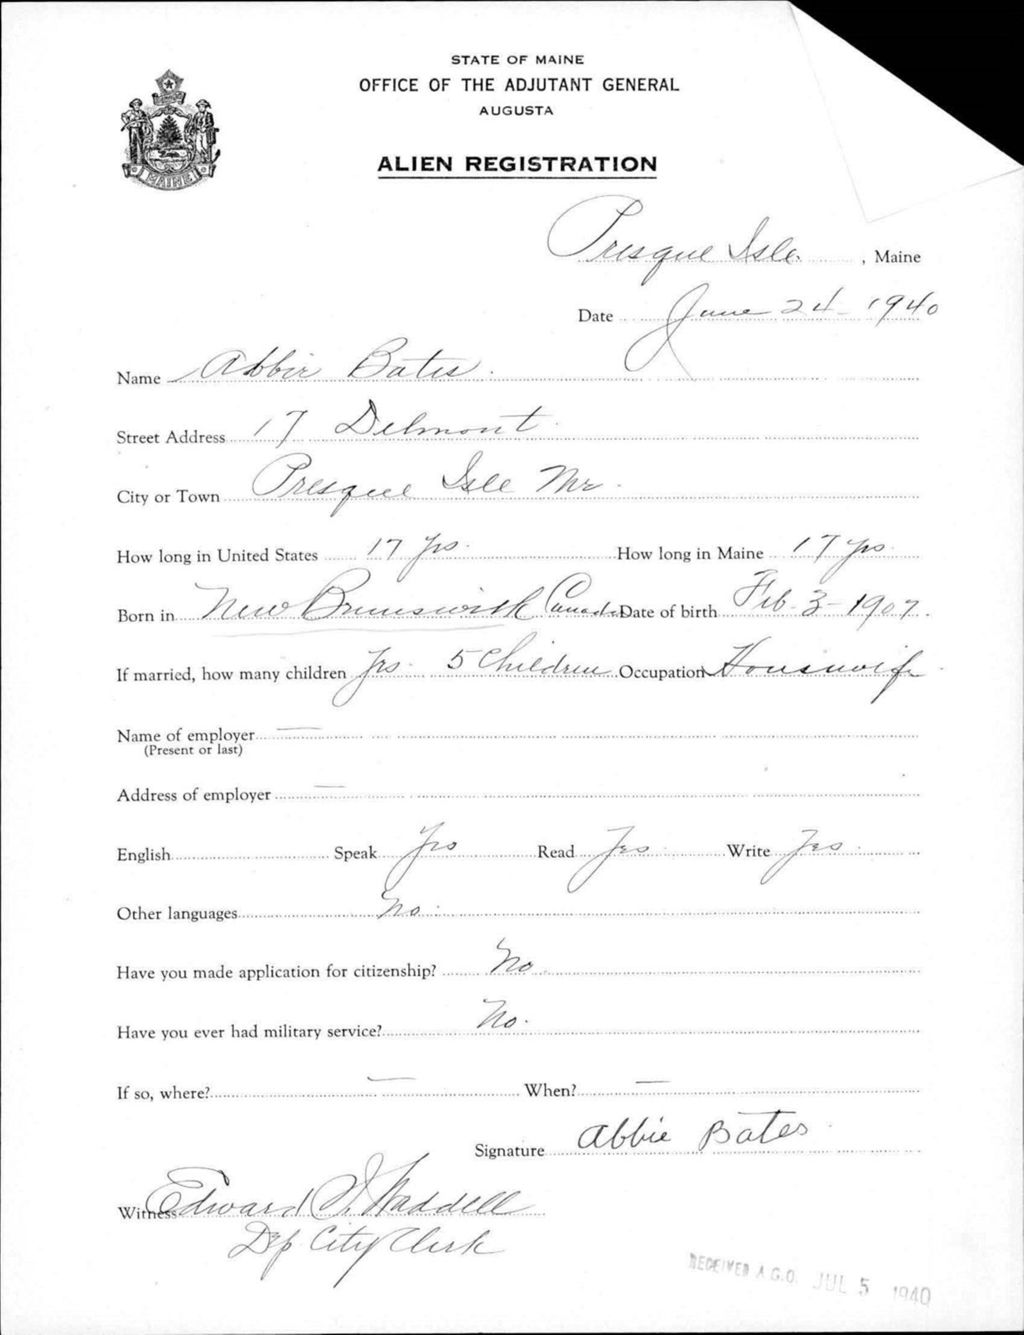 STATE OF MAINE
OFFICE OF THE ADJUTANT GENERAL
AUGUSTA
ALIEN REGISTRATION
MAINE
Presque Isle, Maine
Date June 24 - 1940
Name Abbie Bates.
Street Address 17 Delmont
City or Town Presque Isle Me.
How long in United States 17 yrs. How long in Maine 17 yrs.
Born in New Brunswick Canada Date of birth Feb. 3 - 1907.
If married, how many children Yes. 5 Children Occupation Housewife
Name of employer —
(Present or last)
Address of employer —
English Speak Yes Read Yes Write Yes.
Other languages No.
Have you made application for citizenship? No.
Have you ever had military service? No.
If so, where? — When? —
Signature Abbie Bates
Witness Edward Waddell
Dep City Clerk
RECEIVED A.G.O. JUL 5 1940